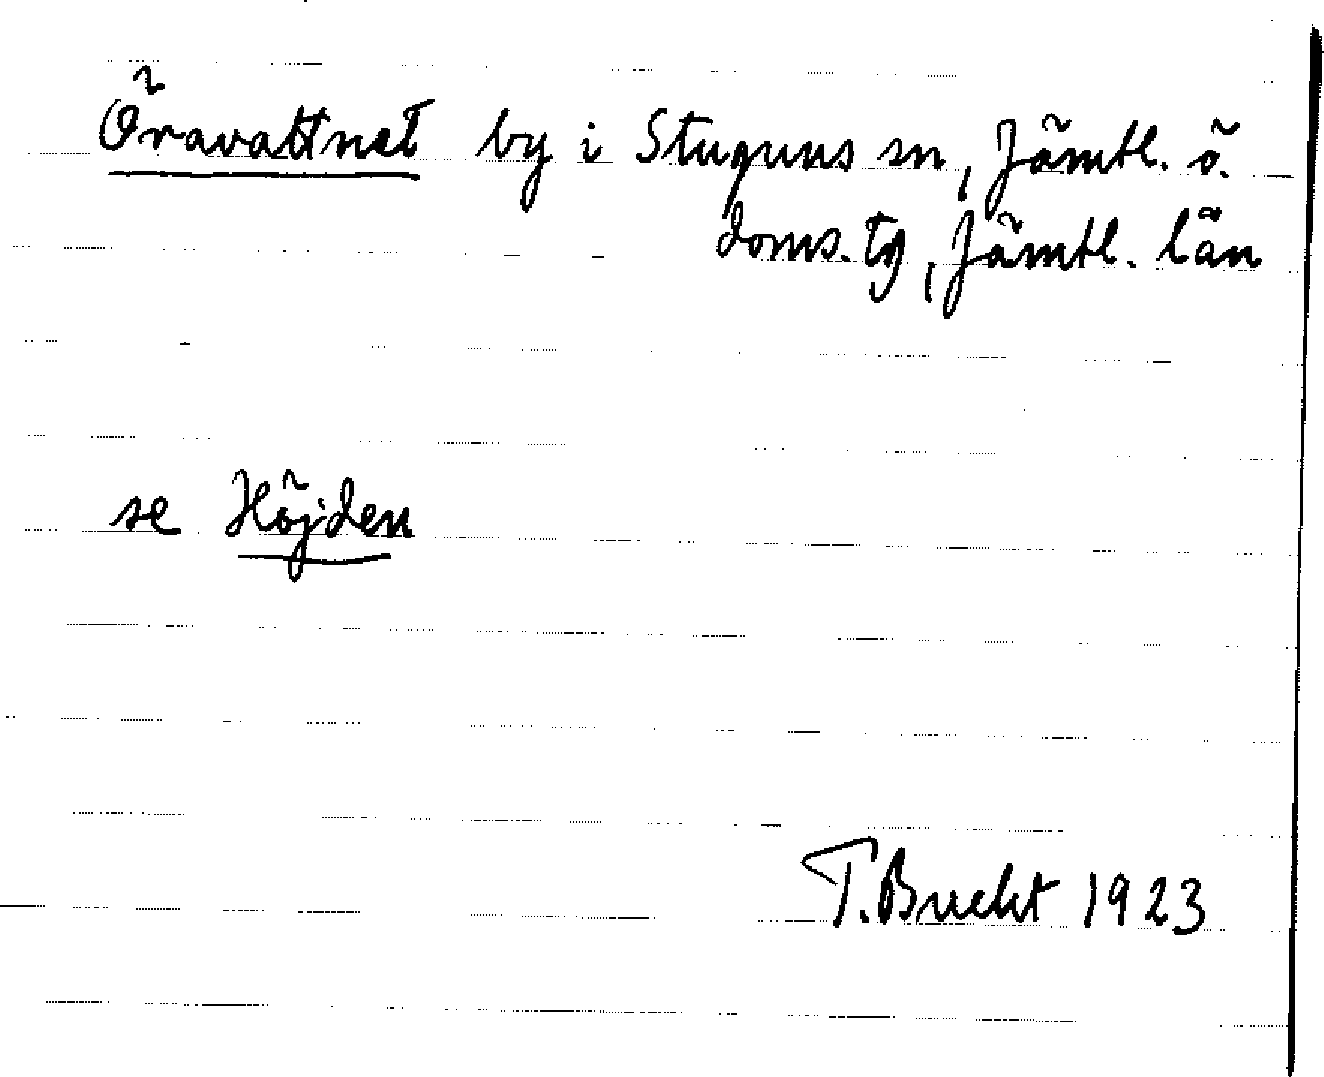 Öravattnet by i Stuguns sn, Jämtl. ö.
doms. tg, Jämtl. län
se Höjden
T. Bucht 1923